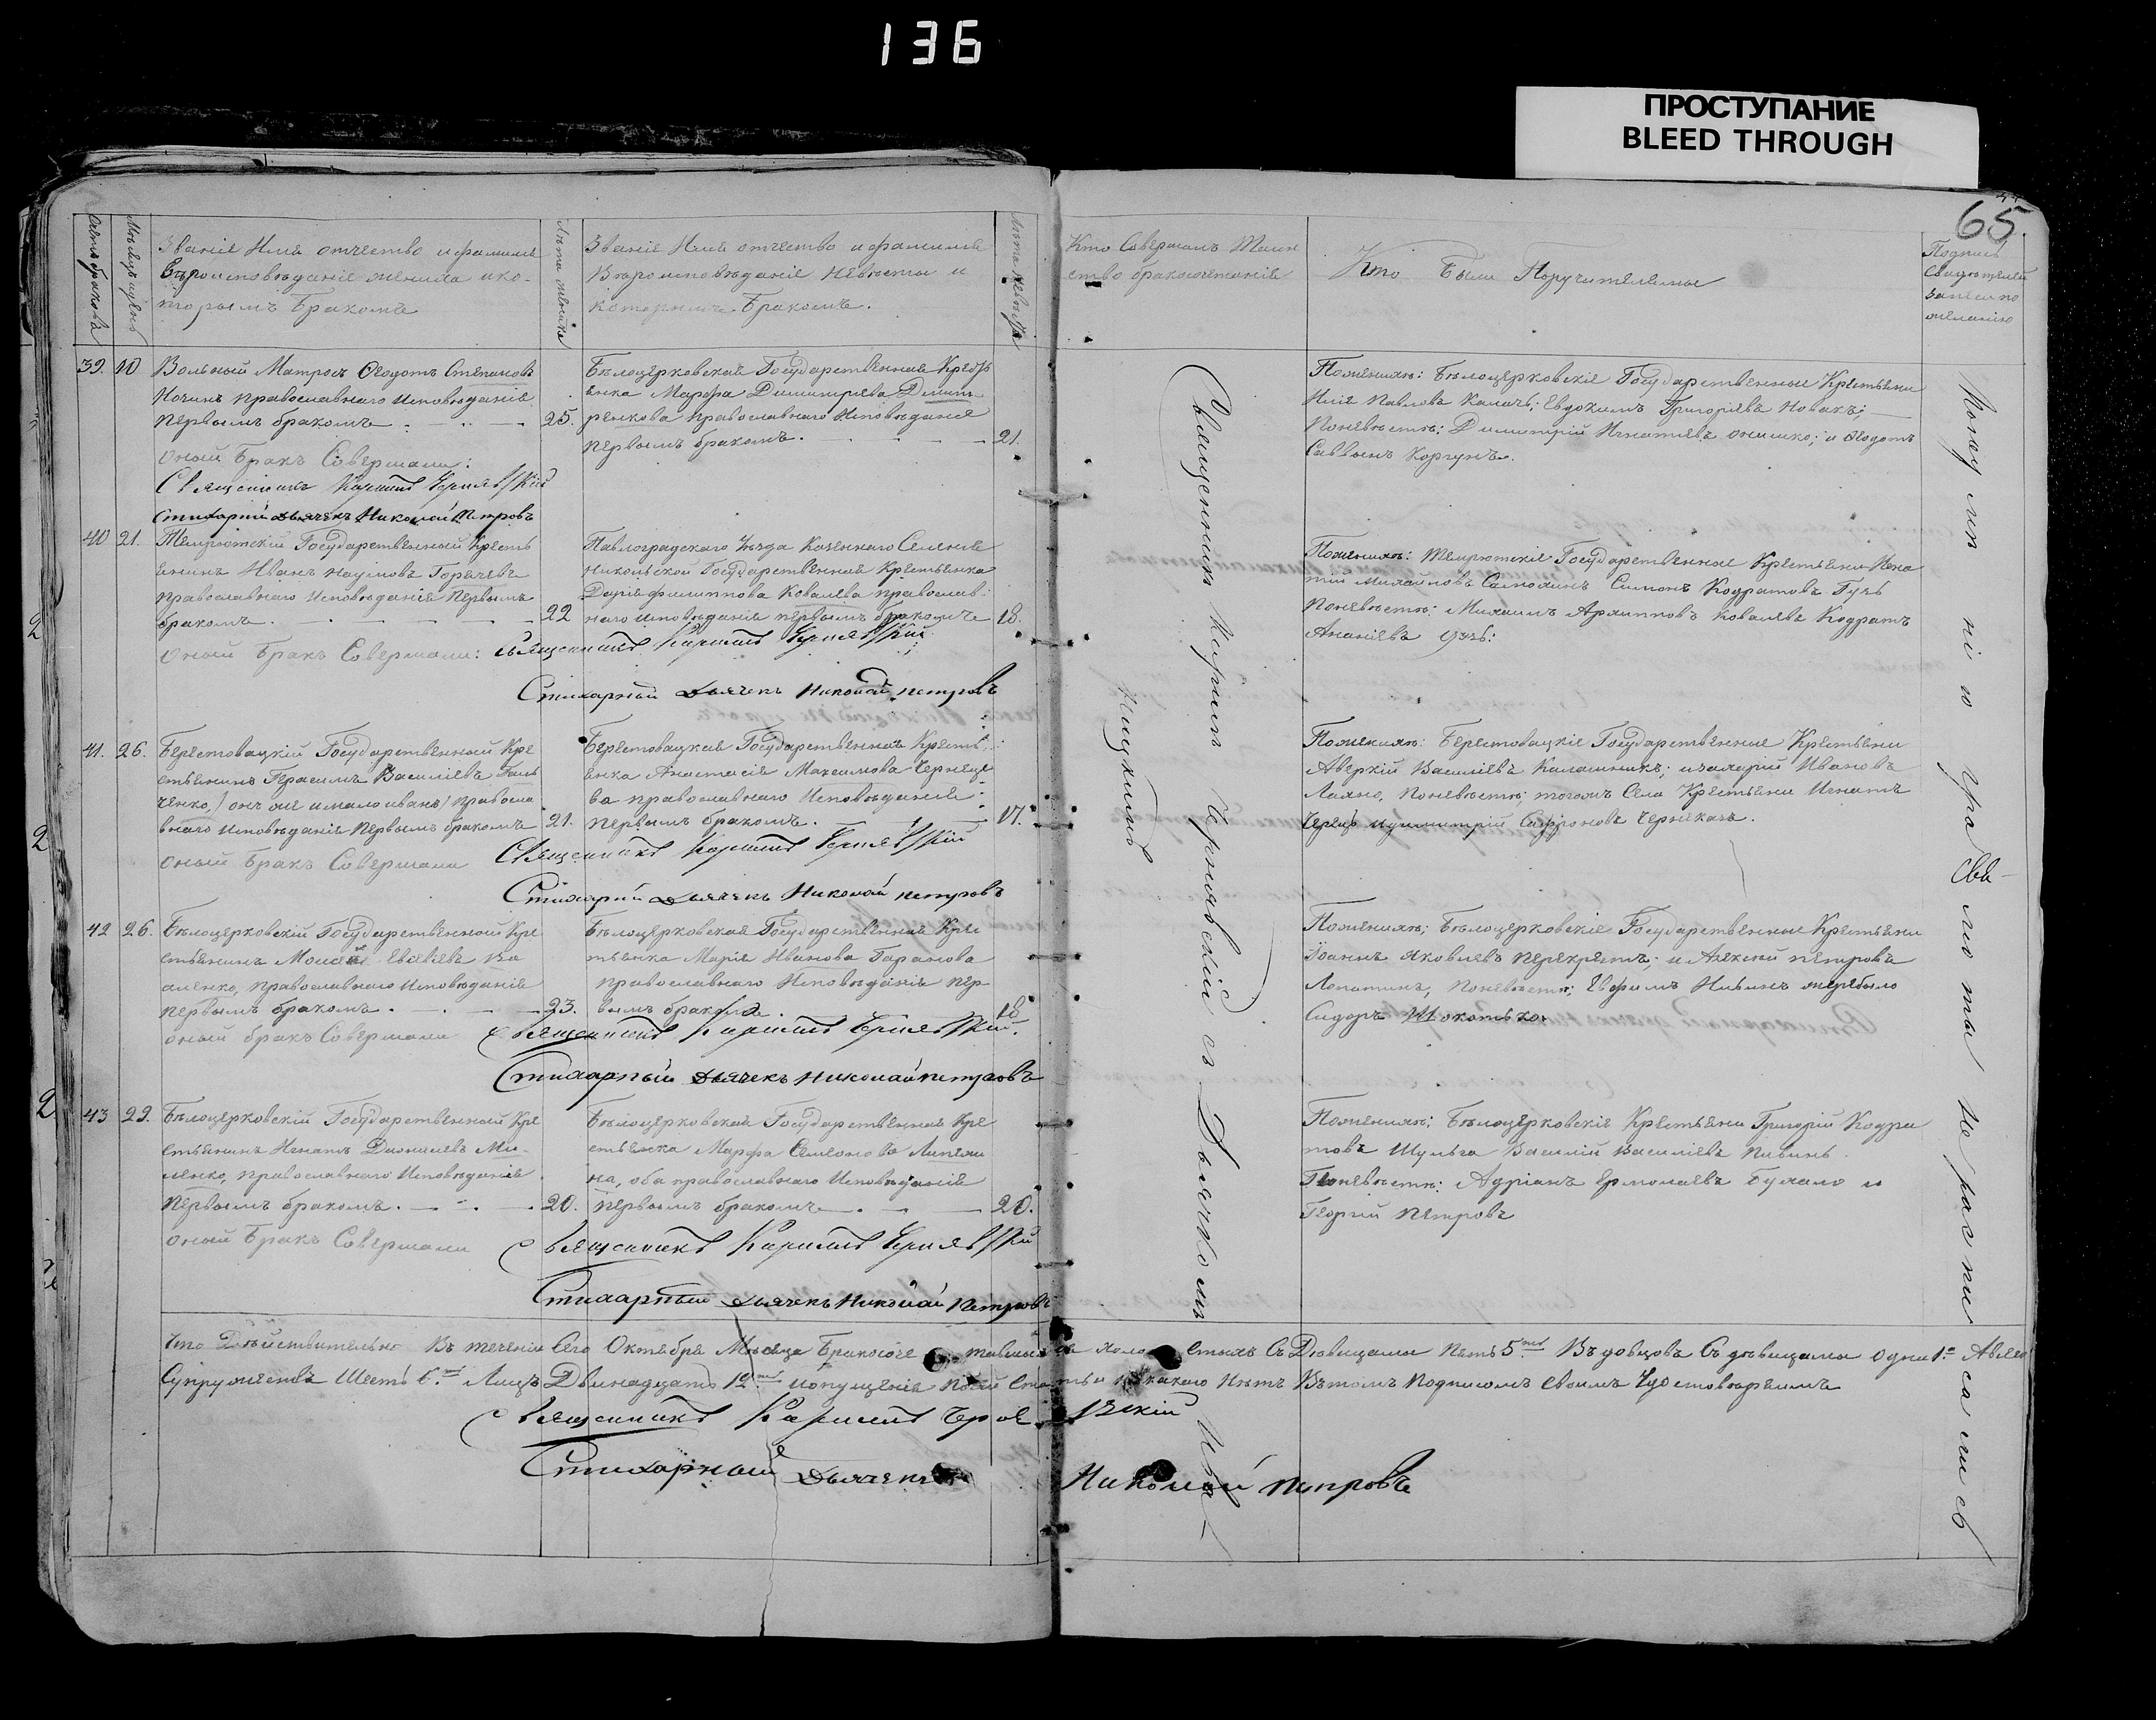 136
ПРОСТУПАНИЕ
BLEED THROUGH
65
Счетъ браковъ
Мѣсяцъ и день
Званіе Имя отчество и фамилія
Вѣроисповѣданіе жениха и ко-
торымъ Бракомъ
Лѣта жениха
Званіе Имя отчество и фамилія
Вѣроисповѣданіе Невѣсты и
которымъ Бракомъ.
Лѣта невѣсты
Кто Совершалъ Таин
ство бракосочетанія
Кто Были Поручителями
Подпись
Свидѣтелей
записи по
желанію
39. 10
Вольный Матросъ Ѳеодотъ Степановъ
Ночинъ православнаго Исповѣданія
Первымъ бракомъ 25.
Оный Бракъ Совершали:
Священникъ Кириллъ Чернявскій
Стихарный Дьячекъ Николай Петровъ
Бѣлоцерковская Государственная Крестья
янка Марфа Димитріева Димит
ренкова Православнаго Исповѣданія
Первымъ бракомъ. 21.
По женихѣ: Бѣлоцерковскіе Государственные Крестьяни
Илія Павловъ Калачъ; Евдокимъ Григоріевъ Новакъ;
По невѣстѣ: Димитрій Игнатіевъ Онишко; и Ѳеодотъ
Саввинъ Коргунъ.
40 21.
Темрютскій Государственный Кресть
янинъ Иванъ Наумовъ Горячевъ
православнаго Исповѣданія Первымъ
бракомъ. 22
Оный Бракъ Совершали: Священникъ Кириллъ Чернявскій
Стихарный Дьячекъ Николай Петровъ
Павлоградскаго Уѣзда Казеннаго Селенія
Никольской Государственная Крестьянка
Дарія Филиппова Ковалева православ
наго исповѣданія первымъ бракомъ 18.
По женихѣ: Темрютскіе Государственные Крестьяни Игна
тій Михайловъ Самохинъ Симонъ Кодратовъ Гузь
По невѣстѣ: Михаилъ Архиповъ Ковалевъ Кодратъ
Ананіевъ Гузь:
41. 26.
Берестовацкій Государственный Кре
стьянинъ Герасимъ Василіевъ Галь
ченко, /онъ же и Малоиванъ/ Правосла
внаго Исповѣданія Первымъ бракомъ 21.
Оный Бракъ Совершали Священникъ Кириллъ Чернявскій
Стихарный Дьячекъ Николай Петровъ
Берестовацкая Государственная Кресть
янка Анастасія Максимова Чернеце
ва православнаго Исповѣданія
Первымъ бракомъ. 17.
По женихѣ: Берестовацкіе Государственные Крестьяни
Аверкій Василіевъ Калашникъ; и Захарій Ивановъ
Ляхно, По невѣстѣ; тогожъ Села Крестьяни Игнатъ
Черецъ и Димитрій Сафроновъ Чернякачъ.
42 26.
Бѣлоцерковскій Государственный Кре
стьянинъ Моисей Евсѣевъ Ва
ленко, православнаго Исповѣданія
Первымъ бракомъ. 23.
Оный бракъ Совершали Священникъ Кириллъ Чернявскій.
Стихарный Дьячекъ Николай Петровъ
Бѣлоцерковская Государственная Кре
стьянка Марія Иванова Гаранова
православнаго Исповѣданія пер
вымъ бракомъ. 18
По женихѣ; Бѣлоцерковскіе Государственные Крестьяни
Іоаннъ Яковлевъ Перехрестъ; и Алексій Петровъ
Лопатинъ, По невѣстѣ; Евфимъ Нивинъ Жеребыло
Сидоръ Шокотько.
43 29.
Бѣлоцерковскій Государственный Кре
стьянинъ Игнатъ Даниловъ Ми-
ленко, православнаго Исповѣданія
Первымъ бракомъ. 20.
Оный Бракъ Совершали Священникъ Кириллъ Чернявскій
Стихарный Дьячекъ Николай Петровъ
Бѣлоцерковская Государственная Кре
стьянка Марфа Семенова Литяги
на, оба православнаго Исповѣданія
Первымъ бракомъ 20.
По женихѣ; Бѣлоцерковскіе Крестьяни Григорій Кодра
товъ Шульга Василій Василіевъ Пивинь
По невѣстѣ: Адріанъ Ермолаевъ Бухало и
Георгій Петровъ
Священникъ Кирилъ Чернявскій съ Дьячкомъ
Почему ни по гра свя
не расписались
Что Дѣйствительно Въ теченіи Сего Октября Мѣсяца Бракосоче тавшихся холо стыхъ Съ Дѣвицами Пять 5. Вдовцовъ Съ дѣвицами одни 1. А всего
Супружествъ Шесть 6. Лицъ Двенадцать 12. и опущенія по сей Статьи никакого Нѣтъ Въ томъ Подписомъ Своимъ Удостовѣряемъ
Священникъ Кириллъ Чернявскій
Стихарный Дьячекъ Николай Петровъ